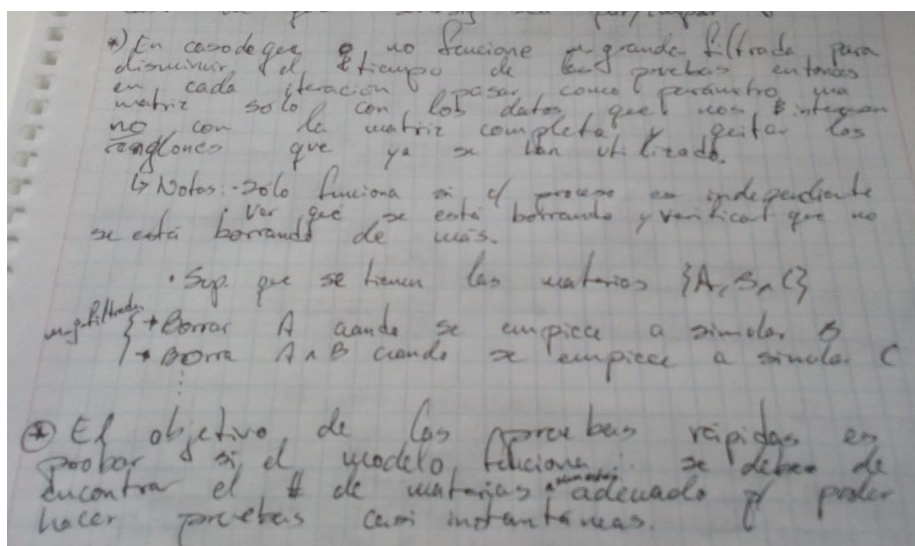 *) En caso de que no funcione m_grande_filtrada para
disminuir el tiempo de las pruebas entonces
en cada iteración pasar como parámetro una
matriz solo con los datos que nos interesan
no con la matriz completa y quitar los
renglones que ya se han utilizado.
↳ Notas: -Sólo funciona si el proceso es independiente
Ver que se está borrando y verificar que no
se está borrando de más.
• Sup. que se tienen las materias {A, B, C}
m_g_filtrada { → Borrar A cuando se empiece a simular B
→ Borra A ∧ B cuando se empiece a simular C
⊛ El objetivo de las pruebas rápidas es
probar si el modelo funciona ∴ se deben de
encontrar el # de materias adecuado p/ poder
hacer pruebas casi instantáneas.